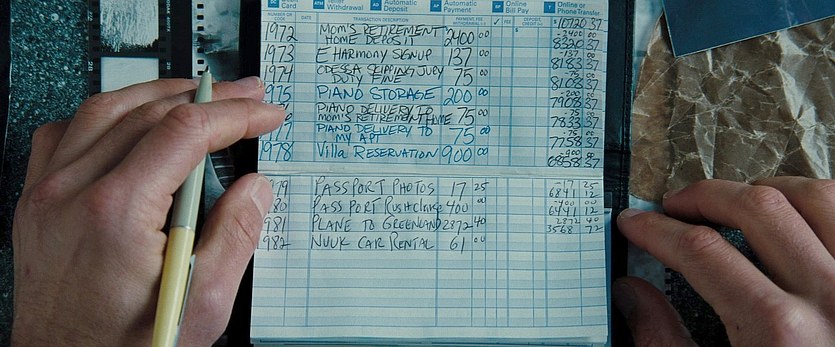 DC Card ATM Teller Withdrawal AD Automatic Deposit AP Automatic Payment BP Online Bill Pay T Online or Phone Transfer
NUMBER OR CODE DATE TRANSACTION DESCRIPTION PAYMENT, FEE WITHDRAWAL (-) ✓ FEE DEPOSIT, CREDIT (+) $ 10720 37
1972 MOM'S RETIREMENT HOME DEPOSIT 2400 00 -2400 00 8320 37
1973 E HARMONY SIGNUP 137 00 -137 8183 37
1974 ODESSA SKIPPING JURY DUTY FINE 75 00 -75 8108 37
1975 PIANO STORAGE 200 00 -200 7908 37
PIANO DELIVERY TO MOM'S RETIREMENT HOME 75 00 75 7833 37
PIANO DELIVERY TO MY APT 75 00 -75 7758 37
1978 Villa RESERVATION 900 00 -900 6858 37
979 PASSPORT PHOTOS 17 25 -17 25 6841 12
980 PASSPORT Rush charge 400 00 -400 00 6441 12
981 PLANE TO GREENLAND 2872 40 2872 40 3568 72
982 NUUK CAR RENTAL 61 00